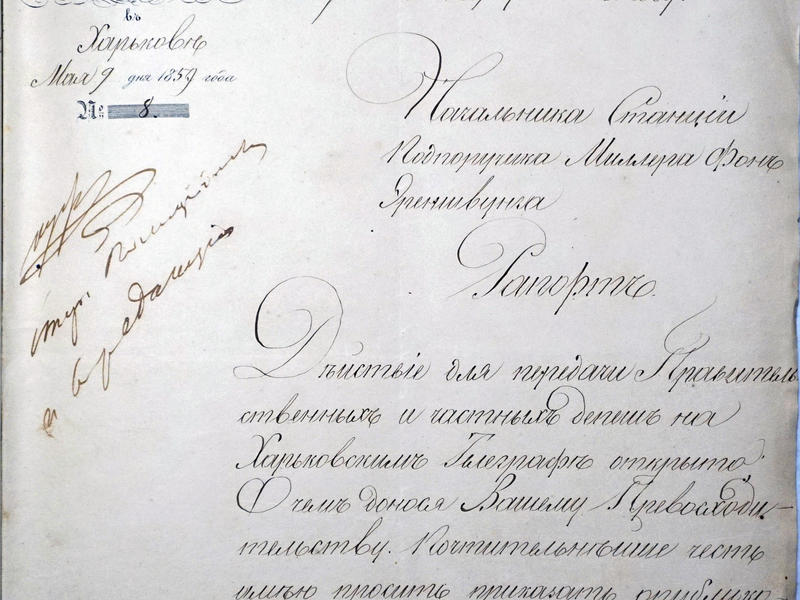 въ
Харьковѣ
Мая 9 дня 1859 года
№ 8.
Начальника Станціи
Подпоручика Миллера Фонъ
Рапортъ.
Дѣйствіе для передачи Правитель
ственныхъ и частныхъ депешъ на
Харьковскимъ Телеграфѣ открыто
О чемъ донося Вашему Превосходи-
тельству. Почтительнѣйше честь
имѣю просить приказать опублико-
и въ редакцію